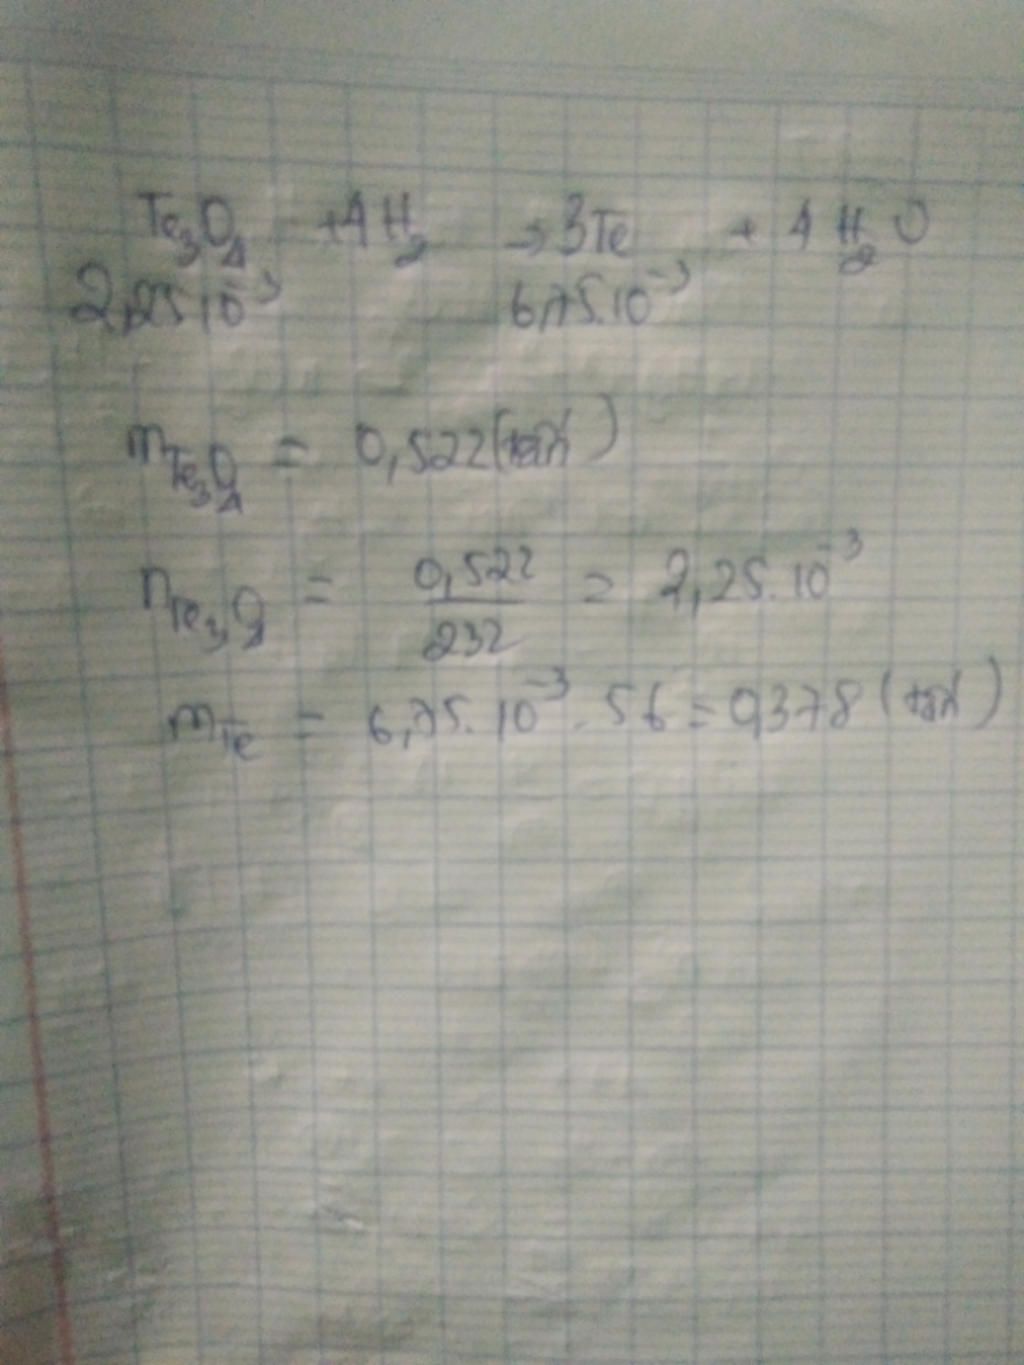 Fe₃O₄ + 4H₂ → 3Fe + 4H₂O
2,25.10⁻³ 6,75.10⁻³
m Fe₃O₄ = 0,522 (tấn)
n Fe₃O₄ = 0,522/232 = 2,25.10⁻³
m Fe = 6,75.10⁻³ . 56 = 0,378 (tấn)